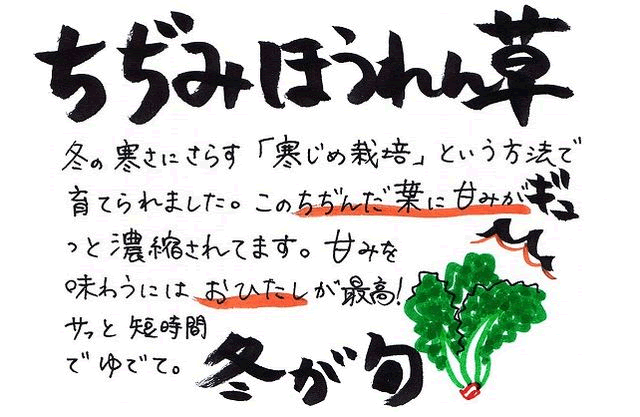 ちぢみほうれん草
冬の寒さにさらす「寒じめ栽培」という方法で
育てられました。このちぢんだ葉に甘みがギュ
っと濃縮されてます。甘みを
味わうには おひたしが最高!
サッと短時間
でゆでて。
冬が旬